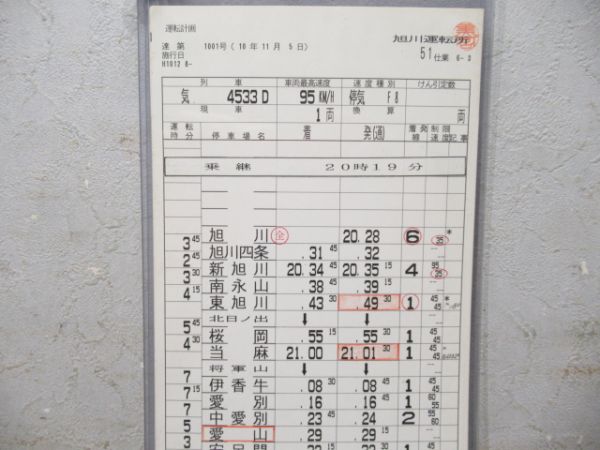 運転計画
旭川運転所
達 第 1001号 ( 10 年 11 月 5 日 )
51 仕業 6- 3
施行日
H1012 6-
列 車 車両最高速度 速度種別 けん引定数
気 4533 D 95 KM/H 停気 F 8
現 車 換 算
1 両 両
運転時分 停車場名 着 発(通) 着発線 制限速度 記事
乗 継 20時19分
旭 川 全 20.28 6 35 *
3 45 旭川四条 .31 45 .32
2 新旭川 20.34 45 20.35 15 4 95 35
3 30 南永山 .38 45 .39 15
4 15 東旭川 .43 30 .49 30 1 45 45 *
北日ノ出 ↓ ↓
5 45 桜 岡 .55 15 .55 30 1 45 45
4 30 当 麻 21.00 21.01 30 1 45 45
将軍山 ↓ ↓
7 伊香牛 .08 30 .08 45 1 45 45
7 15 愛 別 .16 .16 45 1 45 60
7 中愛別 .23 45 .24 2 55 60 55
5 愛 山 .29 .29 15
3